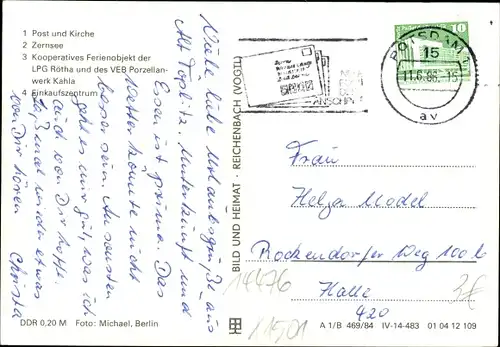 1 Post und Kirche
2 Zernsee
3 Kooperatives Ferienobjekt der
LPG Rötha und des VEB Porzellan-
werk Kahla
4 Einkaufszentrum
Viele liebe Urlaubsgrüße aus
Alt Töplitz. Unterkunft und
Essen ist prima. Das
Wetter könnte nicht
besser sein. Ansonsten
geht es mir gut, was ich
auch von Dir hoffe.
Laß mal wieder etwas
von Dir hören
Christa
DDR 0,20 M Foto: Michael, Berlin
BILD UND HEIMAT · REICHENBACH (VOGTL)
ANSCHRIFT
POTSDAM 1
15
11.6.86-15
av
10
Frau
Helga Model
Rockendorfer Weg 100b
Halle
420
14476
11501
3€
A 1/B 469/84 IV-14-483 01 04 12 109